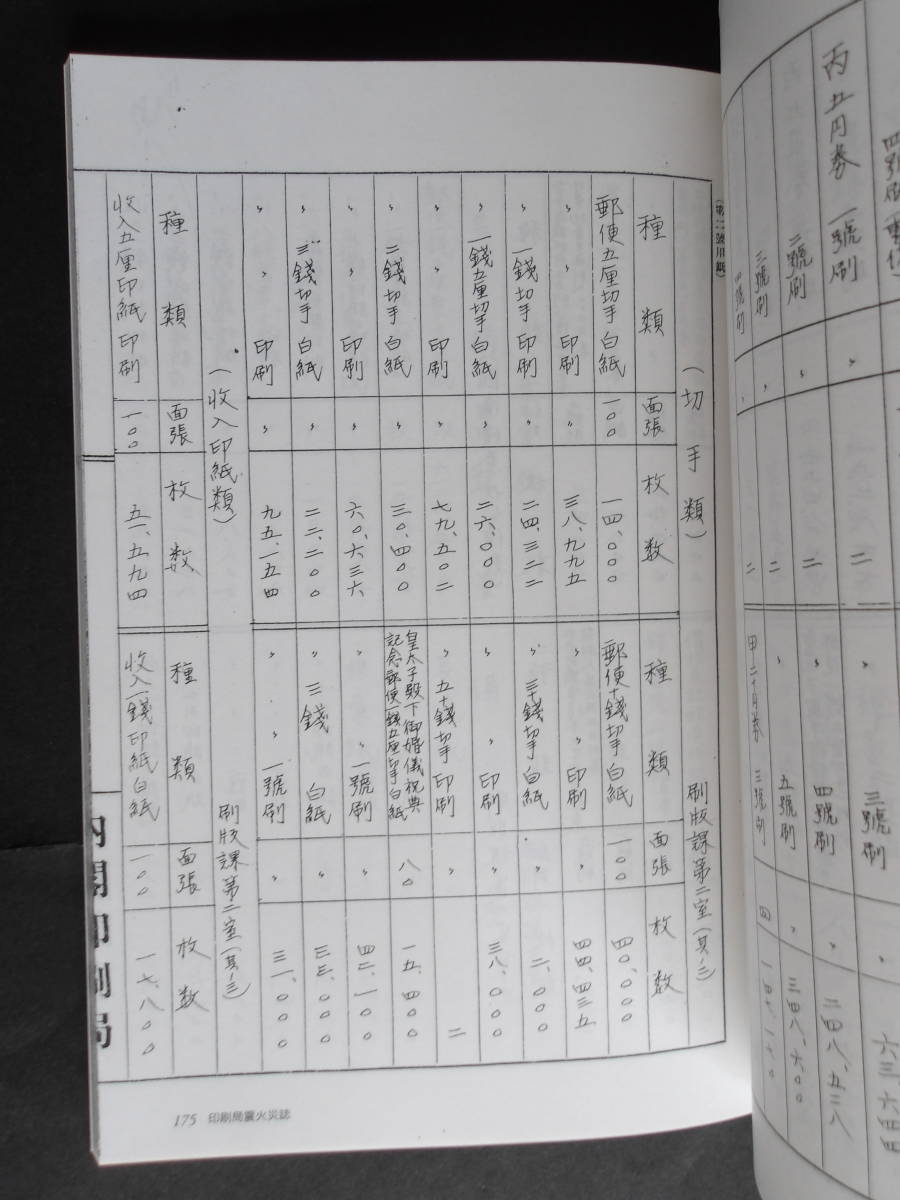 丙五円券 一號刷 〃 二
二號刷 〃 二
三號刷 〃 二
四號刷 〃 二
〃 三號刷 〃 六三、六四四
〃 四號刷 〃 二四八、五二八
〃 五號刷 〃 三四八、六〇〇
三號刷
(切手類)
刷版課第二室(其ノ三)
種類 面張 枚数
郵便五厘切手 白紙 一〇〇 一四、〇〇〇
〃 〃 印刷 〃 三八、九九五
〃 一錢切手 印刷 〃 二四、三二二
〃 一錢五厘切手 白紙 〃 二六、〇〇〇
〃 〃 印刷 〃 七九、五〇二
〃 二錢切手 白紙 〃 三〇、四〇〇
〃 〃 印刷 〃 六〇、六三六
〃 三錢切手 白紙 〃 二二、二〇〇
〃 〃 印刷 〃 九五、一五四
種類 面張 枚数
郵便十錢切手 白紙 一〇〇 四〇、〇〇〇
〃 〃 印刷 〃 四四、四三五
〃 三十錢切手 白紙 〃 二、〇〇〇
〃 〃 印刷 〃 三八、〇〇〇
〃 五十錢切手 印刷 〃 二
皇太子殿下御婚儀祝典
記念郵便一錢五厘切手白紙 八〇 一五、四〇〇
〃 〃 一號刷 〃 四二、一〇〇
〃 三錢 白紙 〃 三三、〇〇〇
〃 〃 一號刷 〃 三一、〇〇〇
(收入印紙類)
刷版課第二室(其ノ三)
種類 面張 枚数
收入五厘印紙 印刷 一〇〇 五一、五九四
種類 面張 枚数
收入一錢印紙 白紙 一〇〇 一七、八〇〇
内閣印刷局
175 印刷局震火災誌